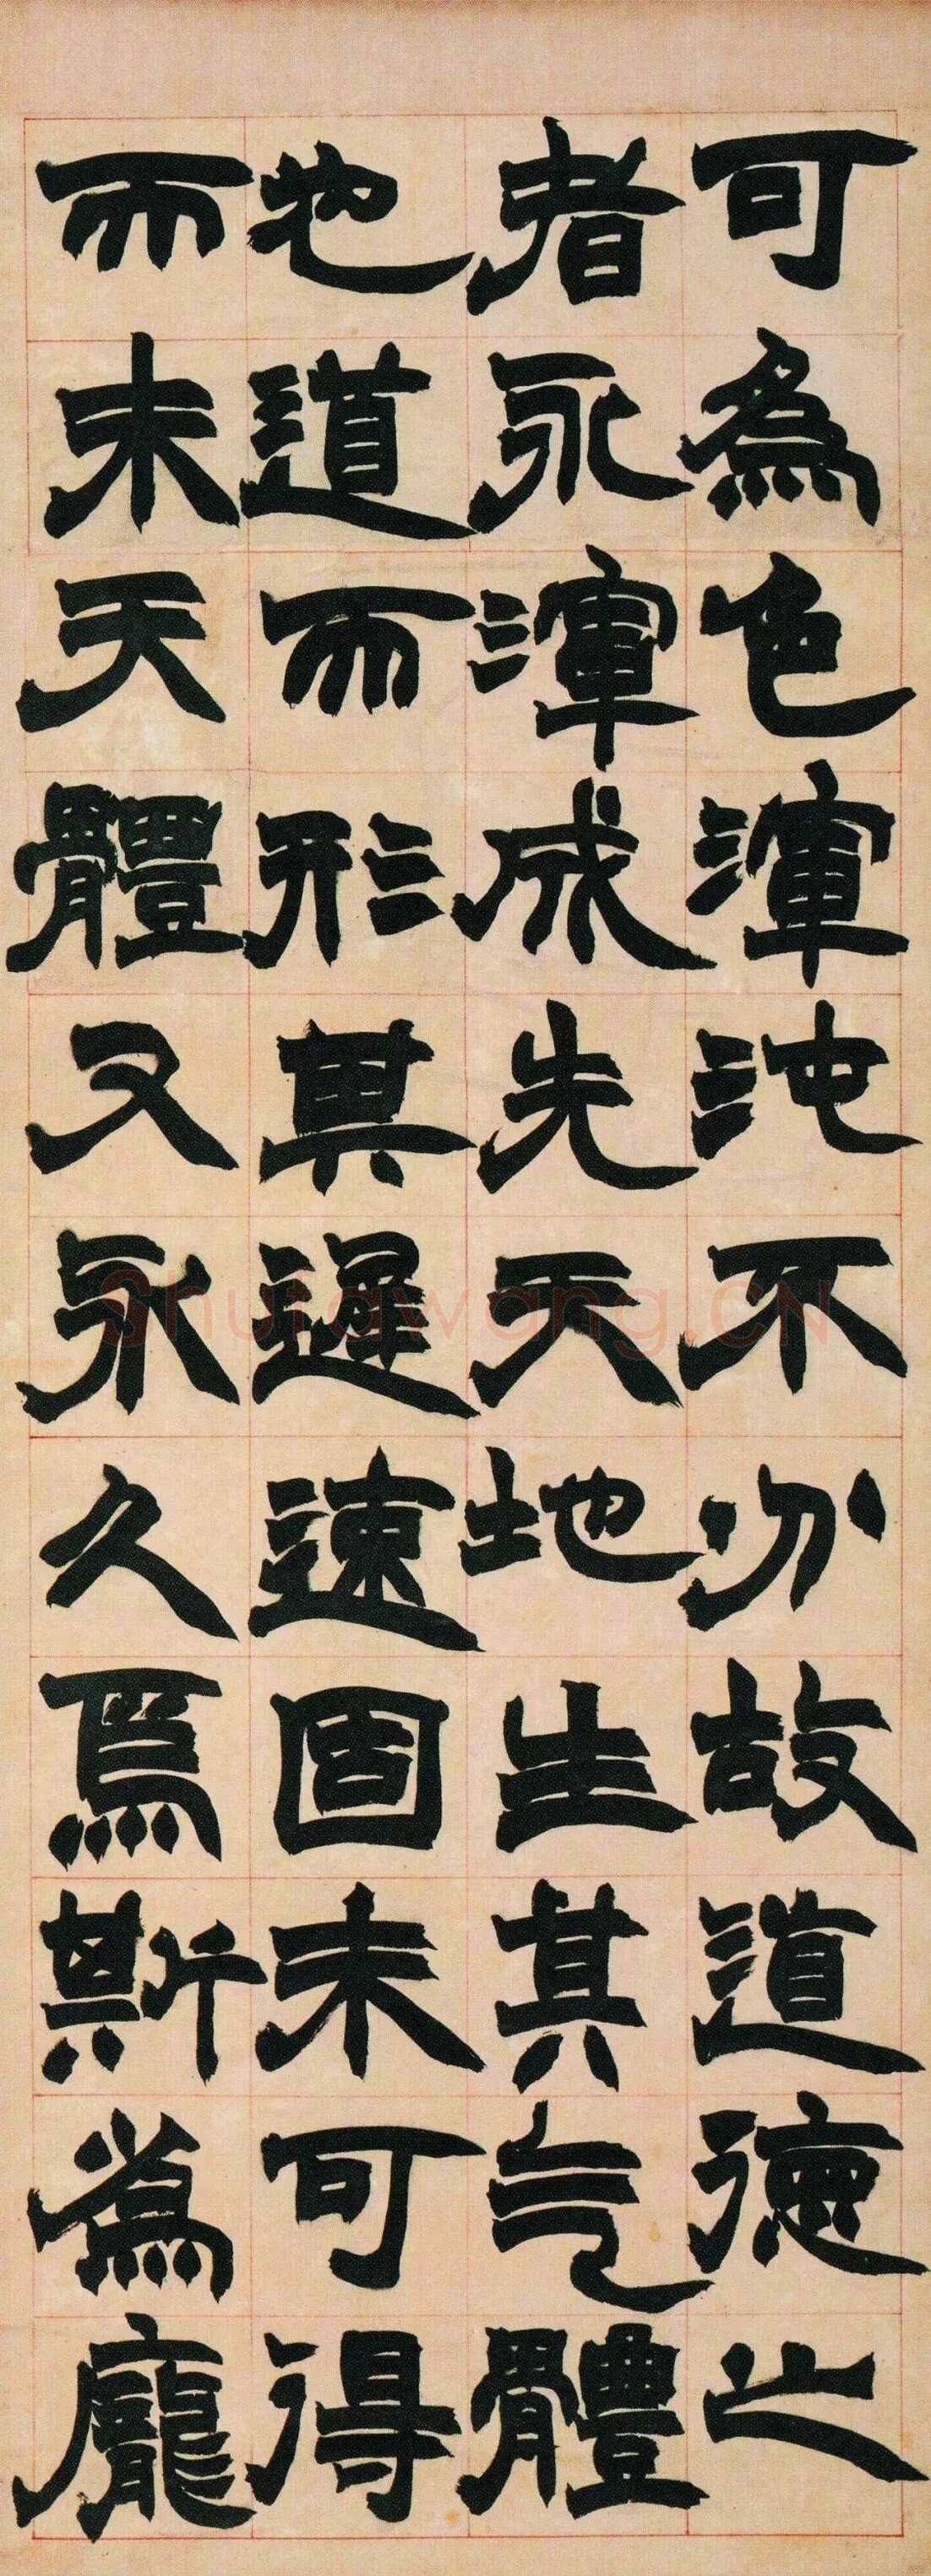 可為色渾沌不分故道德之
者永渾成先天地生其气體
也道而形其遲速固未可得
而未天體又永久焉斯為龐
Shufawang.CN